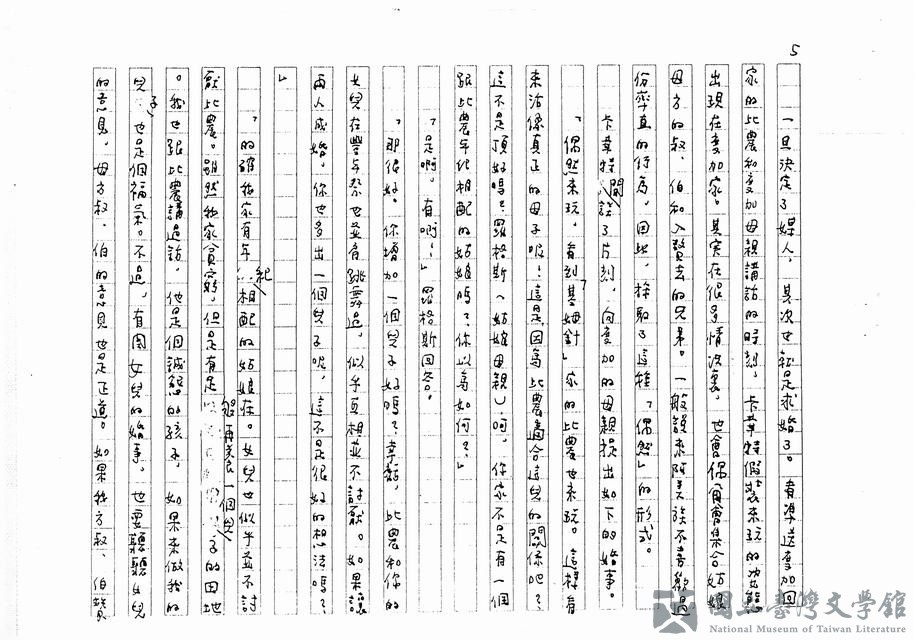 5
一旦決定了媒人，其次也就是求婚了。有準送麥加回
家的比農和麥加母親講話的時刻，卡草特假裝來玩的姿態
出現在麥加家。其實在很多情況裏，也會偶會集合姑娘
母方的叔、伯和入贅去的兄弟。一般說來阿美族不喜歡過
份率直的行為，因此，採取了這種「偶然」的形式。
卡草特閒談了片刻，向麥加的母親提出如下的婚事。
「偶然來玩，看到基姆針家的比農也來玩。這樣看
來活像真正的母子呢！這是因為比農適合這兒的關係吧？
這不是頂好嗎？羅格斯（姑娘母親）呵，你家不是有一個
跟比農年紀相配的姑娘嗎？你以為如何？」
「是啊，有啊！」羅格斯回答。
「那很好。你增加一個兒子好嗎？幸虧，比農和你的
女兒在豐年祭也並肩跳舞過，似乎互相並不討厭。如果讓
兩人成婚，你也多出一個兒子呢，這不是很好的想法嗎？
」
「的確我家有年紀相配的姑娘在。女兒也似乎並不討
厭比農。雖然我家貧窮，但是有是夠再養一個兒子的田地
。我也跟比農講過話，他是個誠懇的孩子，如果來做我的
兒子也是個福氣。不過，有關女兒的婚事，也要聽聽女兒
的意見。母方叔、伯的意見也是正道。如果我方叔、伯贊
國立臺灣文學館
National Museum of Taiwan Literature